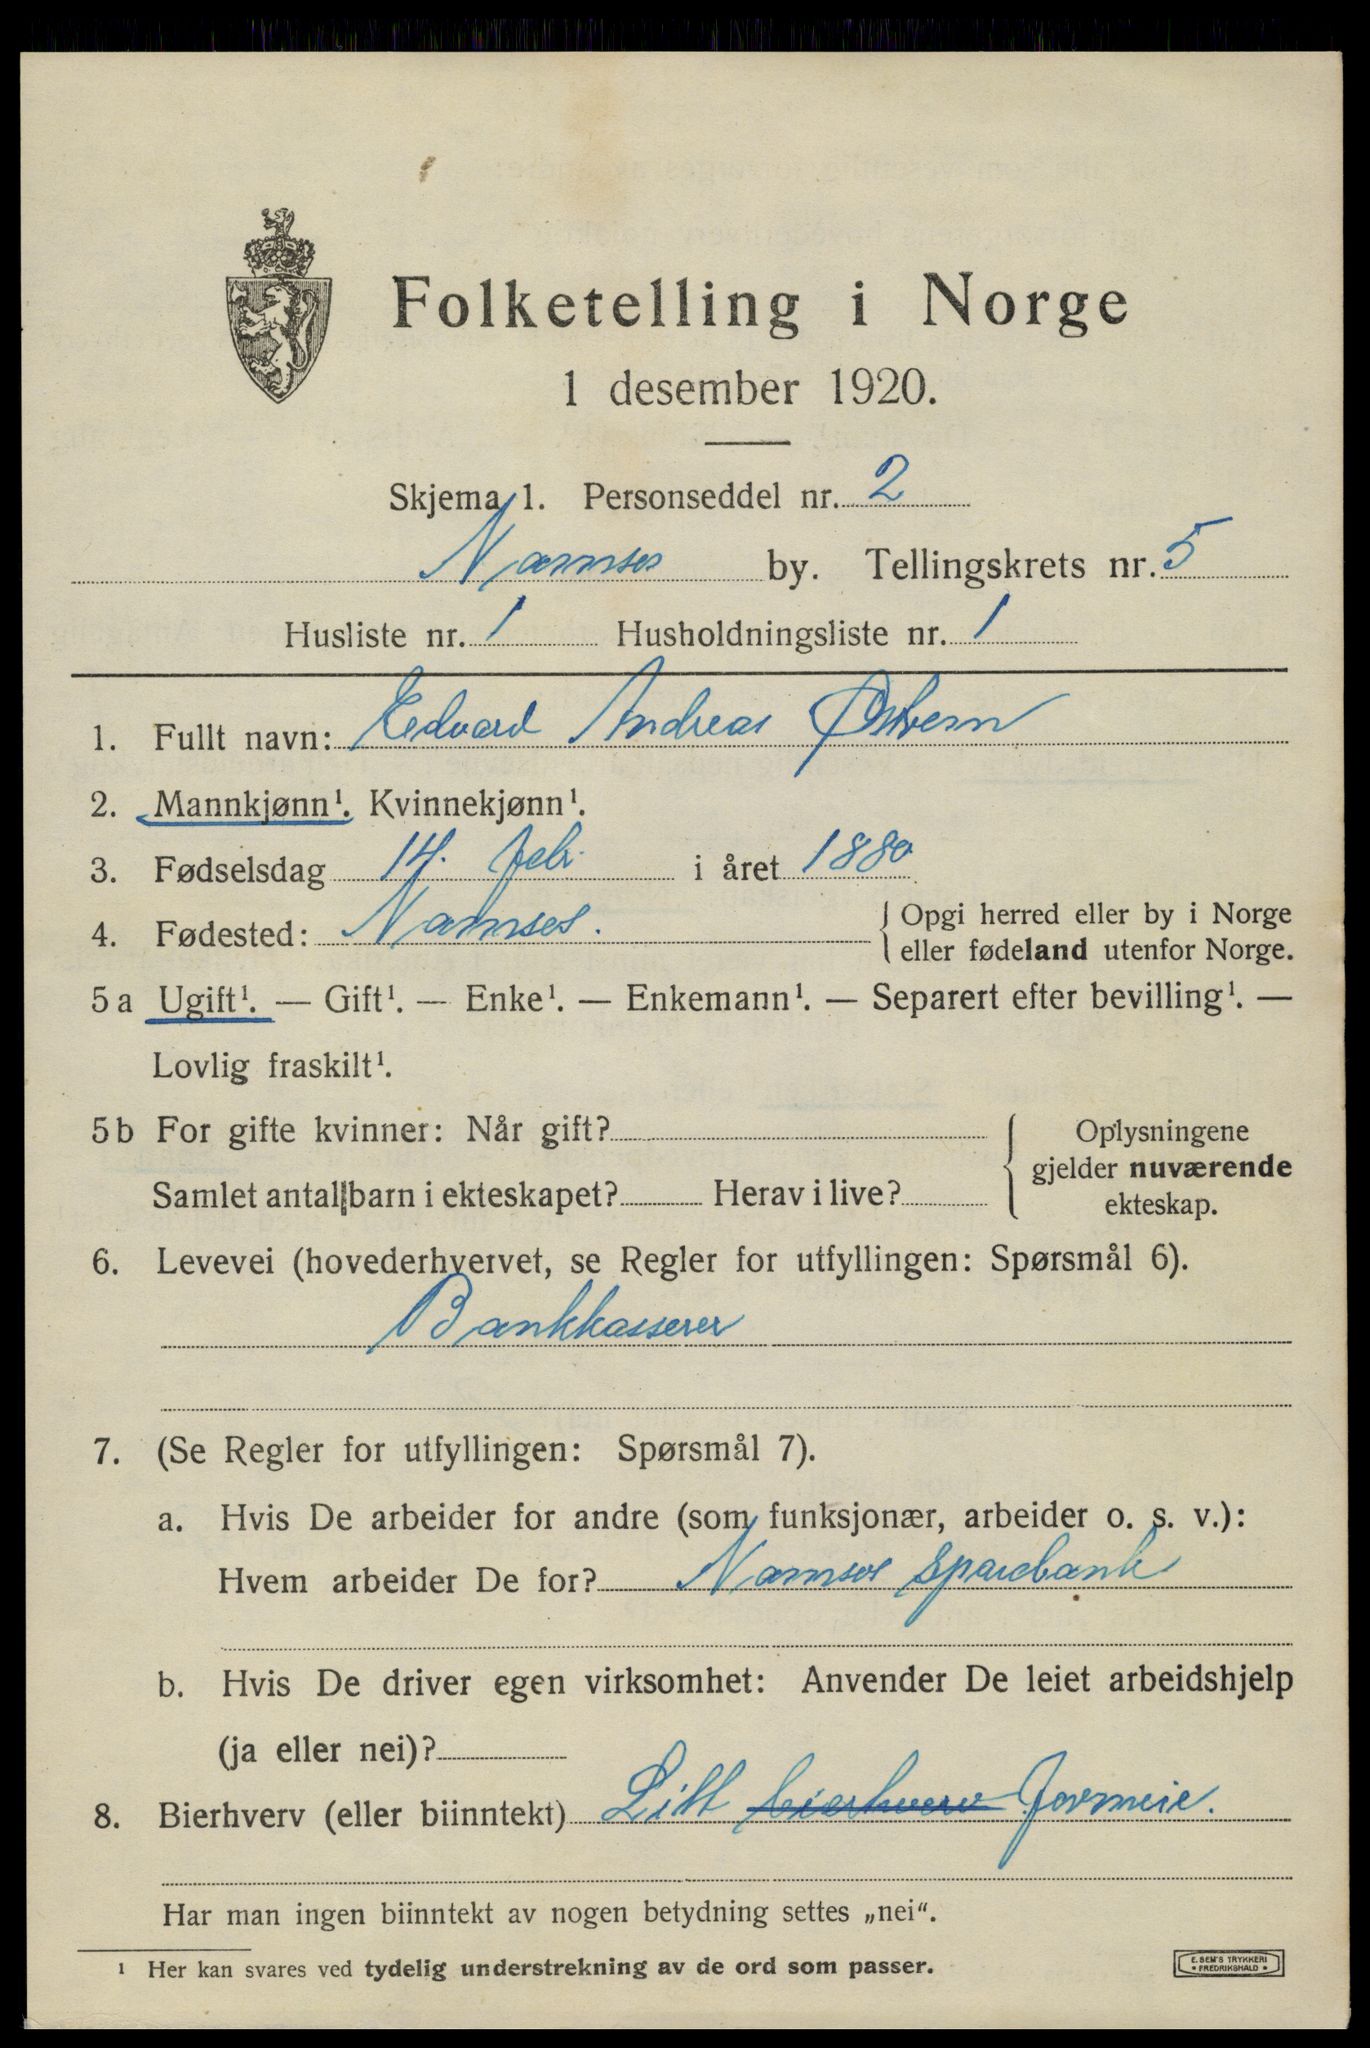 Folketelling i Norge
1 desember 1920.
Skjema 1. Personseddel nr. 2
Namsos by. Tellingskrets nr. 5
Husliste nr. 1 Husholdningsliste nr. 1
1. Fullt navn: Edvard Andreas
2. Mannkjønn¹. Kvinnekjønn¹.
3. Fødselsdag 14. Feb. i året 1880
4. Fødested: Namsos. { Opgi herred eller by i Norge
eller fødeland utenfor Norge.
5 a Ugift¹. — Gift¹. — Enke¹. — Enkemann¹. — Separert efter bevilling¹. —
Lovlig fraskilt¹.
5 b For gifte kvinner: Når gift?
Samlet antall barn i ekteskapet? Herav i live?
{ Oplysningene
gjelder nuværende
ekteskap.
6. Levevei (hovederhvervet, se Regler for utfyllingen: Spørsmål 6).
Bankkasserer
7. (Se Regler for utfyllingen: Spørsmål 7).
a. Hvis De arbeider for andre (som funksjonær, arbeider o. s. v.):
Hvem arbeider De for? Namsos Sparebank
b. Hvis De driver egen virksomhet: Anvender De leiet arbeidshjelp
(ja eller nei)?
8. Bierhverv (eller biinntekt) Litt bierhverv Formue.
Har man ingen biinntekt av nogen betydning settes „nei“.
¹ Her kan svares ved tydelig understrekning av de ord som passer.
E. SEM'S TRYKKERI
* FREDRIKSHALD *